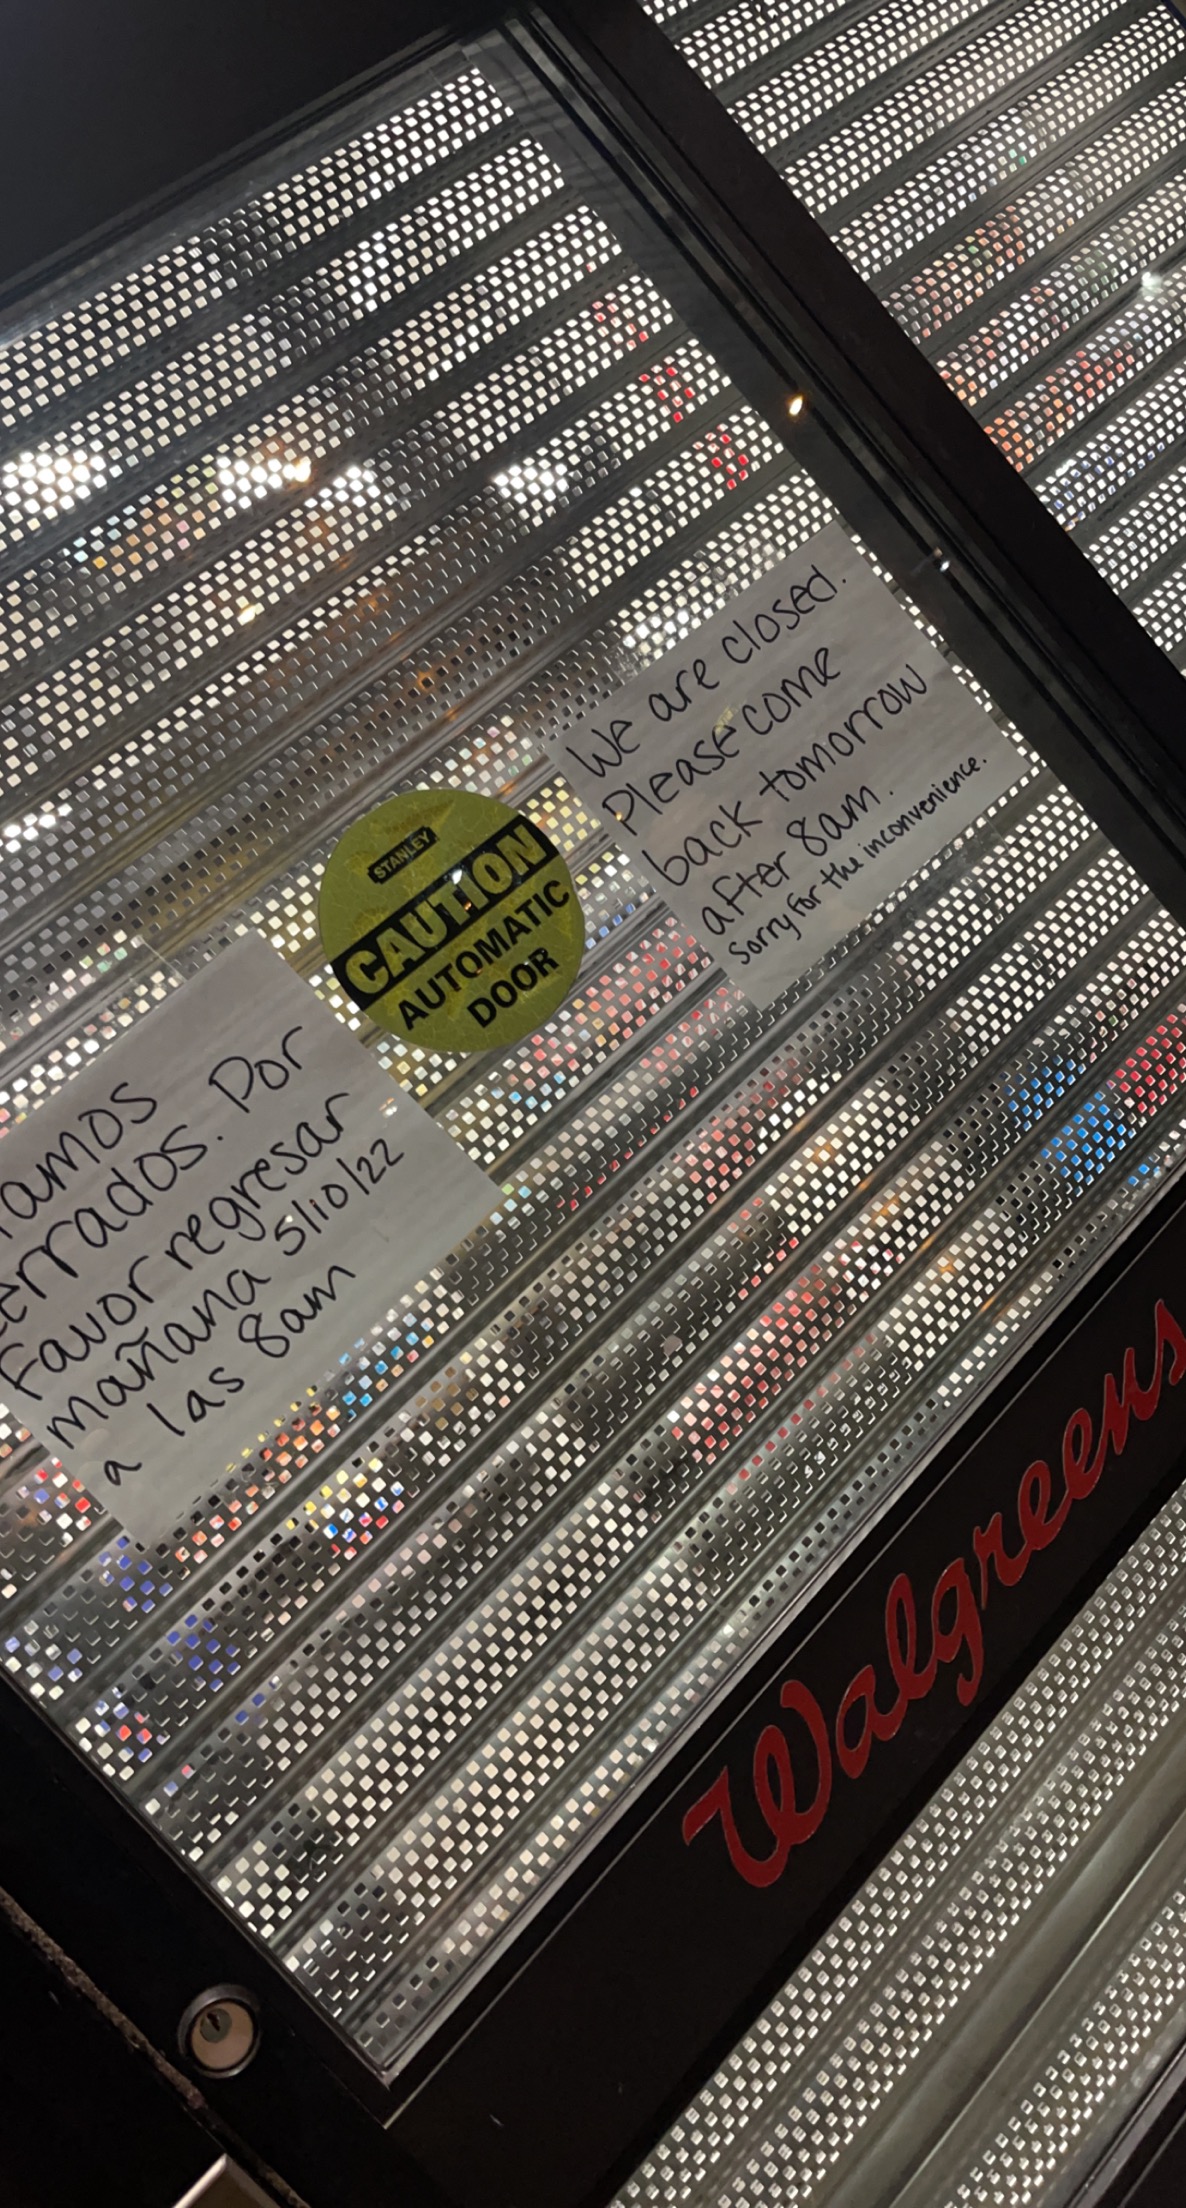 We are closed.
Please come
back tomorrow
after 8am.
Sorry for the inconvenience.
STANLEY
CAUTION
AUTOMATIC
DOOR
Por
Favor regresar
mañana 5/10/22
a las 8am
Walgreens